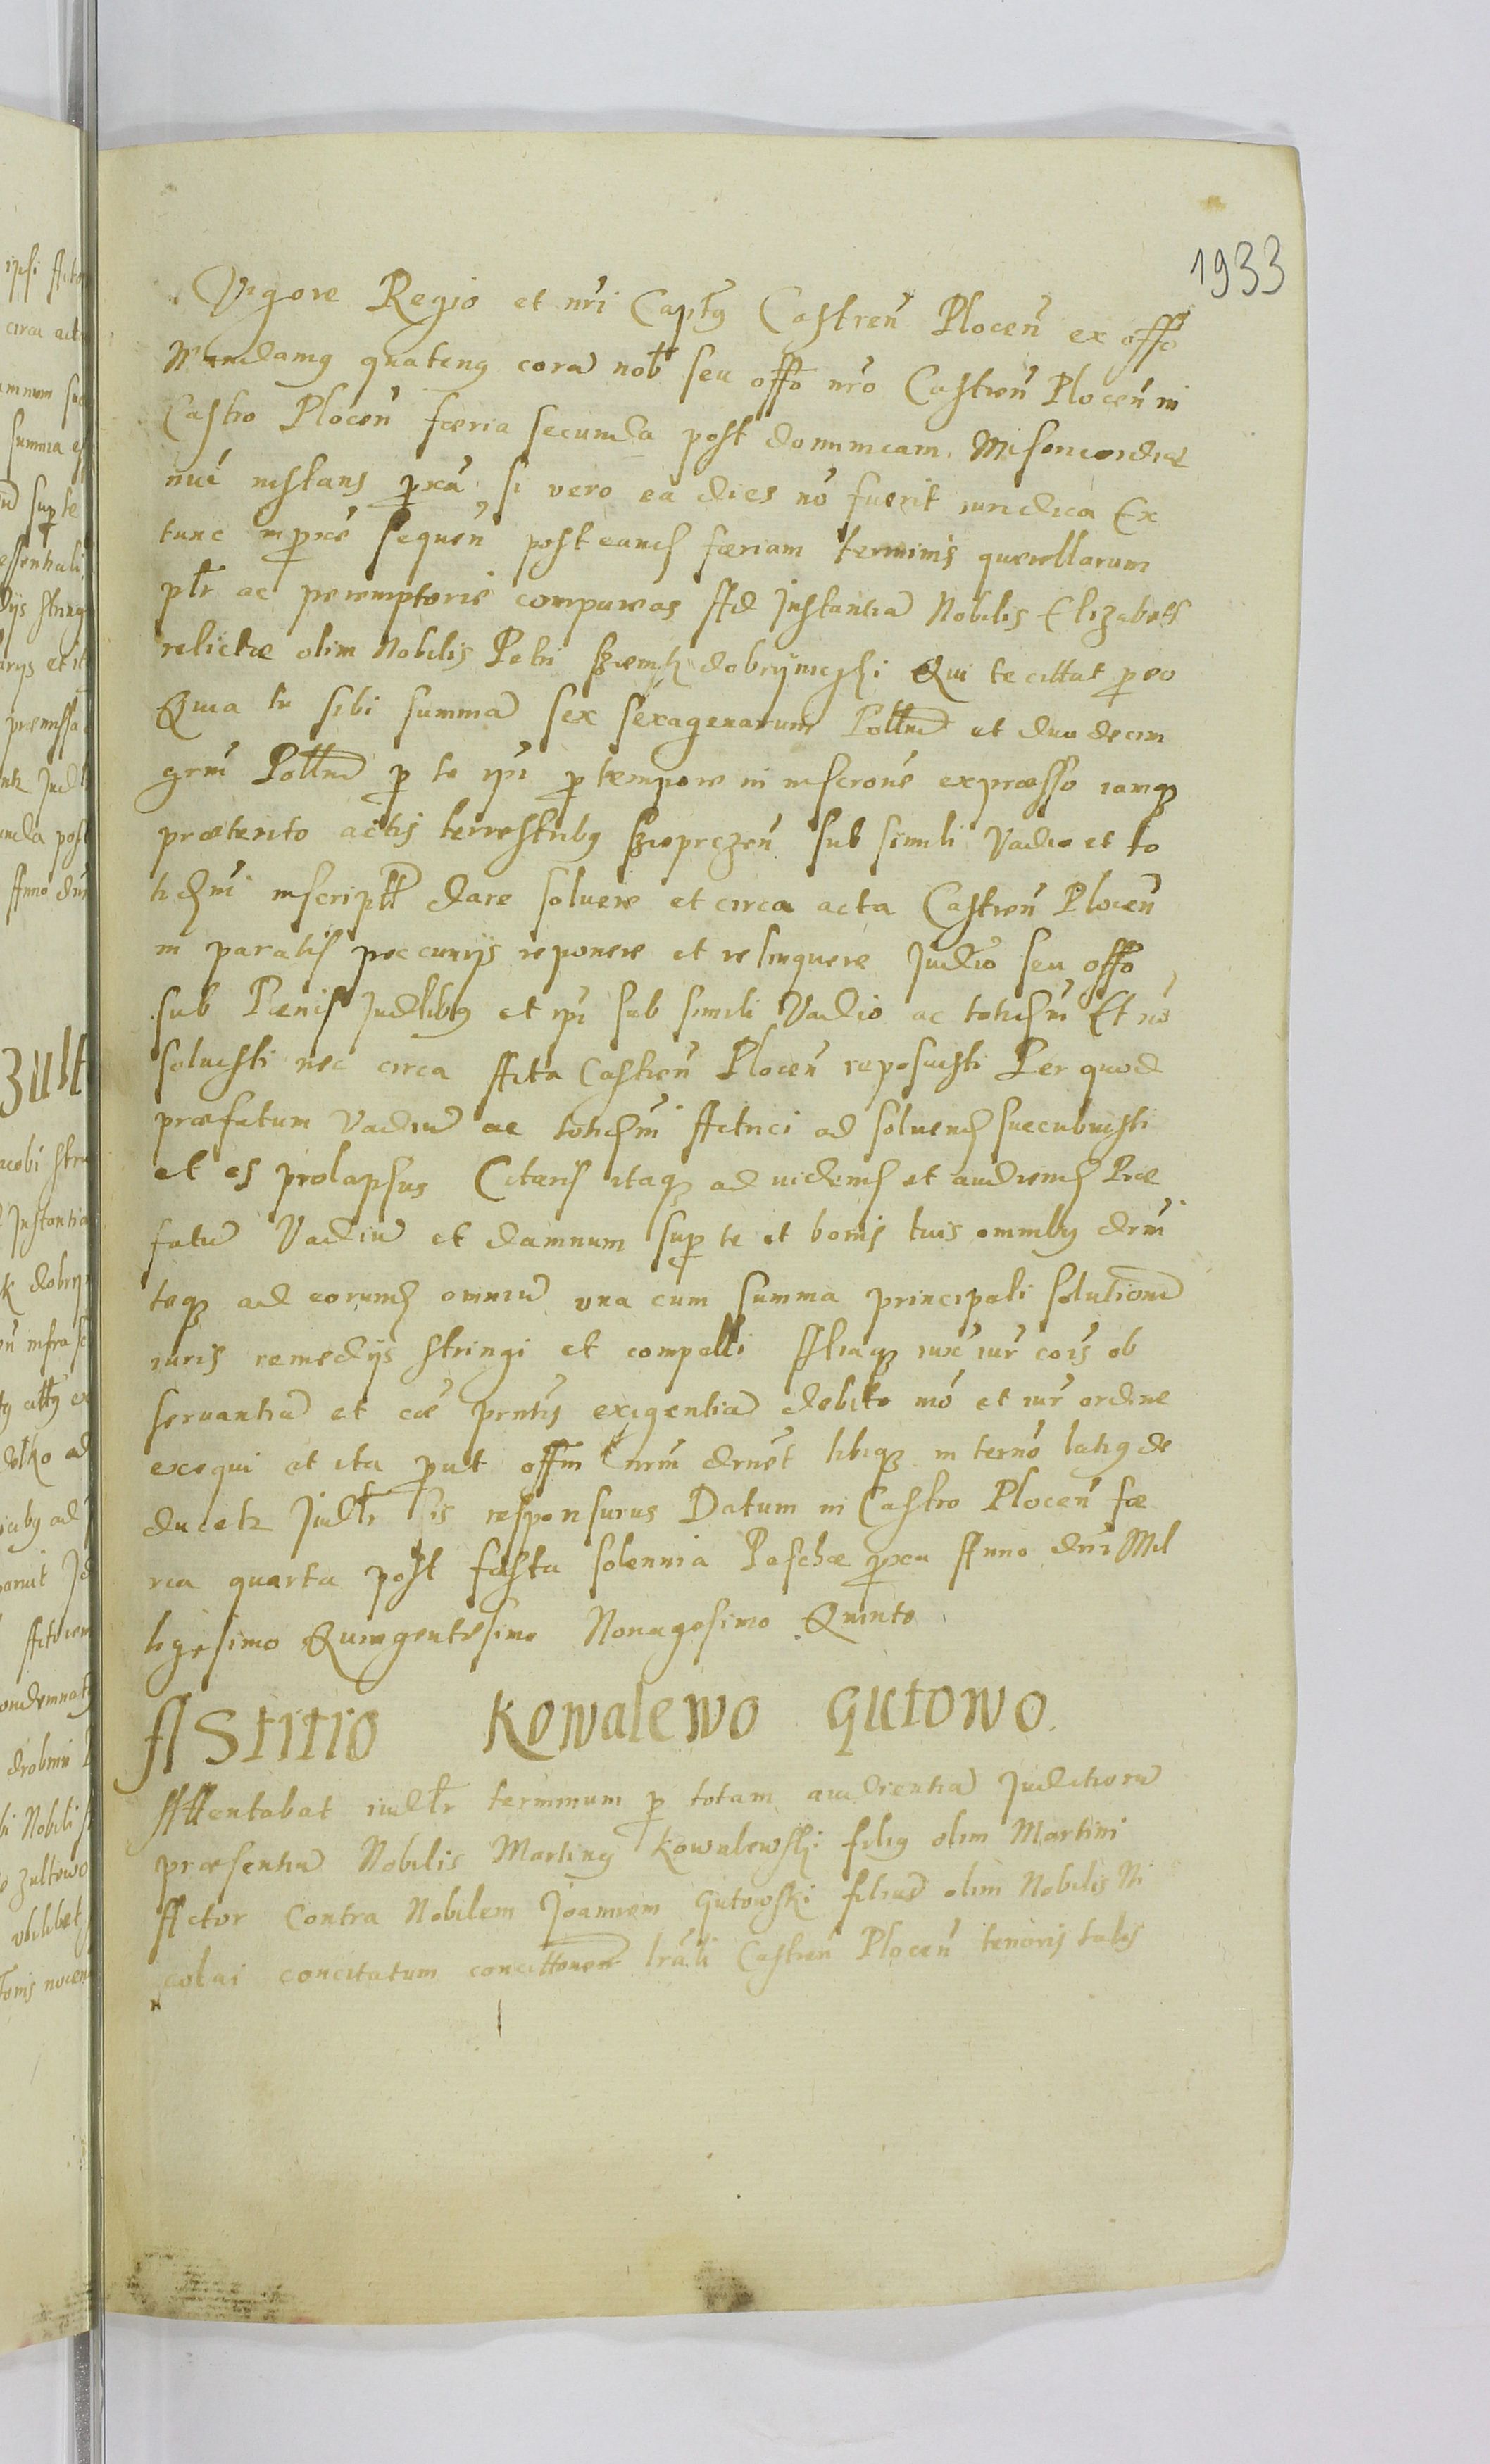 1933
Vigore Regio et nri Captus Castren Plocen ex offo
Mandamus quatenus cora nob seu offo nro Castren Plocen in
Castro Plocen fœria secunda post dominicam Misericordiæ
nuc instans proxa si vero ea dies no fuerit iuridica Ex
tunc in proxe sequen post eand fœriam terminis querellarum
plr ac peremptorie compareas Ad Instantia Nobilis Elizabeth
relictæ olim Nobilis Petri dobrijniczki Qui te cittat pro eo
Quia tu sibi summa sex sexagenarum Poll et duodecim
grm Poll per te ipi pro tempore in inscrone expræsso iamq
præterito actis terrestribus sub simili Vadio et to
tidm inscripth dare soluere et circa acta Castren Plocen
in paratis peccunijs reponere et relinquere Judio seu offo
sub Pænis Judlibus et ipi sub simili Vadio ac totidm Et no
soluisti nec circa Acta Castren Plocen reposuisti Per quod
præfatum Vadiu ac totidm Actrici ad soluend succubuisti
et es prolapsus Citaris itaq ad uidend et audiend Præ
fatu Vadiu et damnum super te et bonis tuis omnibus
teq ad eorumd omniu una cum summa principali solutione
iuris remedijs stringi et compelli Aliaq iux iur cois ob
servantia et cæ pntis exigentia debito mo et iur ordine
exequi et ita prout offm nrm tibiq in terno latius de
ducetr Judlr sis responsurus Datum in Castro Plocen fœ
ria quarta post fæsta solennia Paschæ proxa Anno dni Mil
lesimo Quingentesimo Nonagesimo Quinto
Astitio Kowalewo Gutowo.
Attentabat iudlr terminum per totam audientia Juditioru
præsentiu Nobilis Martinus Kowalewski filius olim Martini
Actor Contra Nobilem Joannem Gutowski filiu olim Nobilis Ni
colai concitatum concittonem lrali Castren Plocen tenoris talis